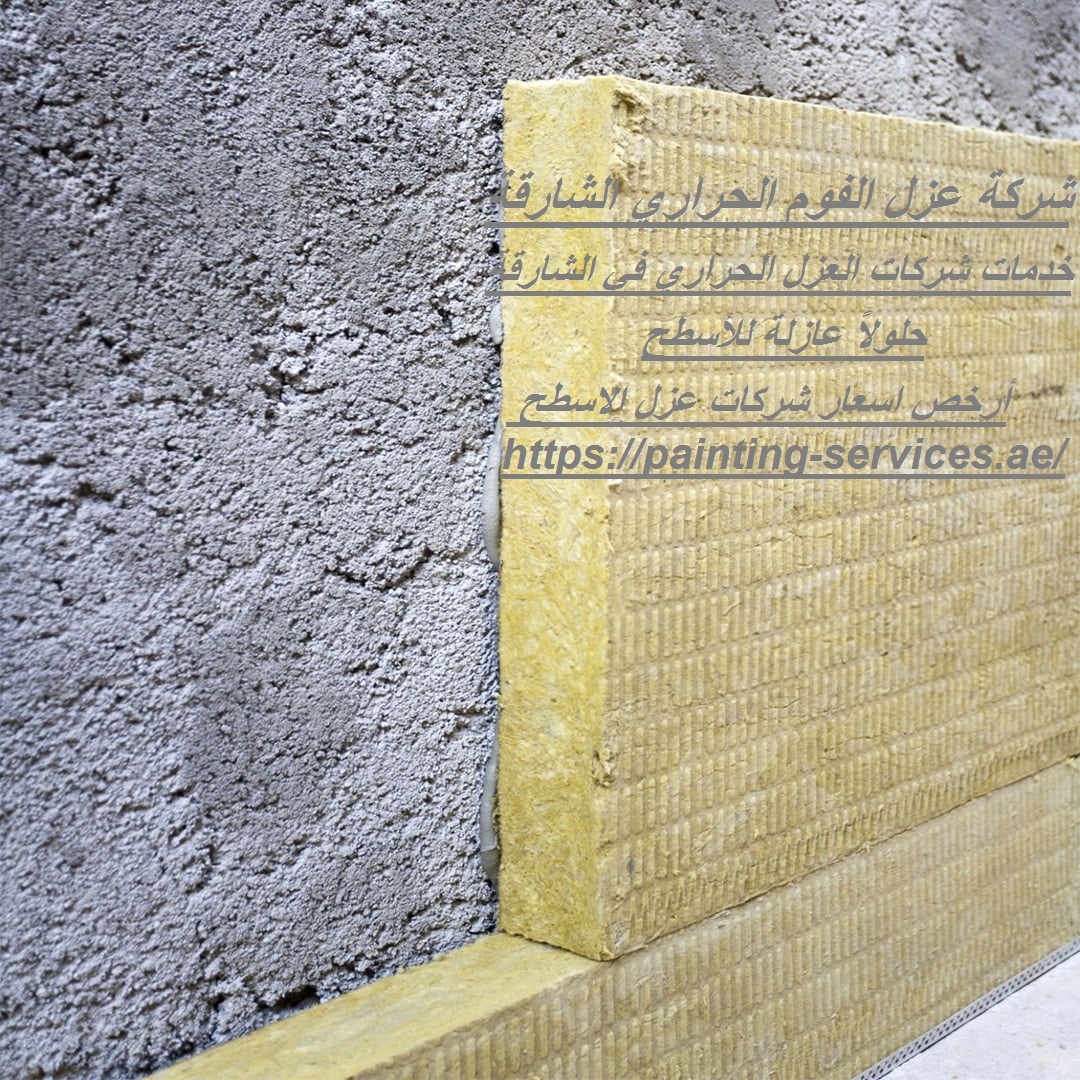 شركة عزل الفوم الحراري الشارقة
خدمات شركات العزل الحراري في الشارقة
حلولاً عازلة للأسطح
أرخص اسعار شركات عزل الاسطح
https://painting-services.ae/